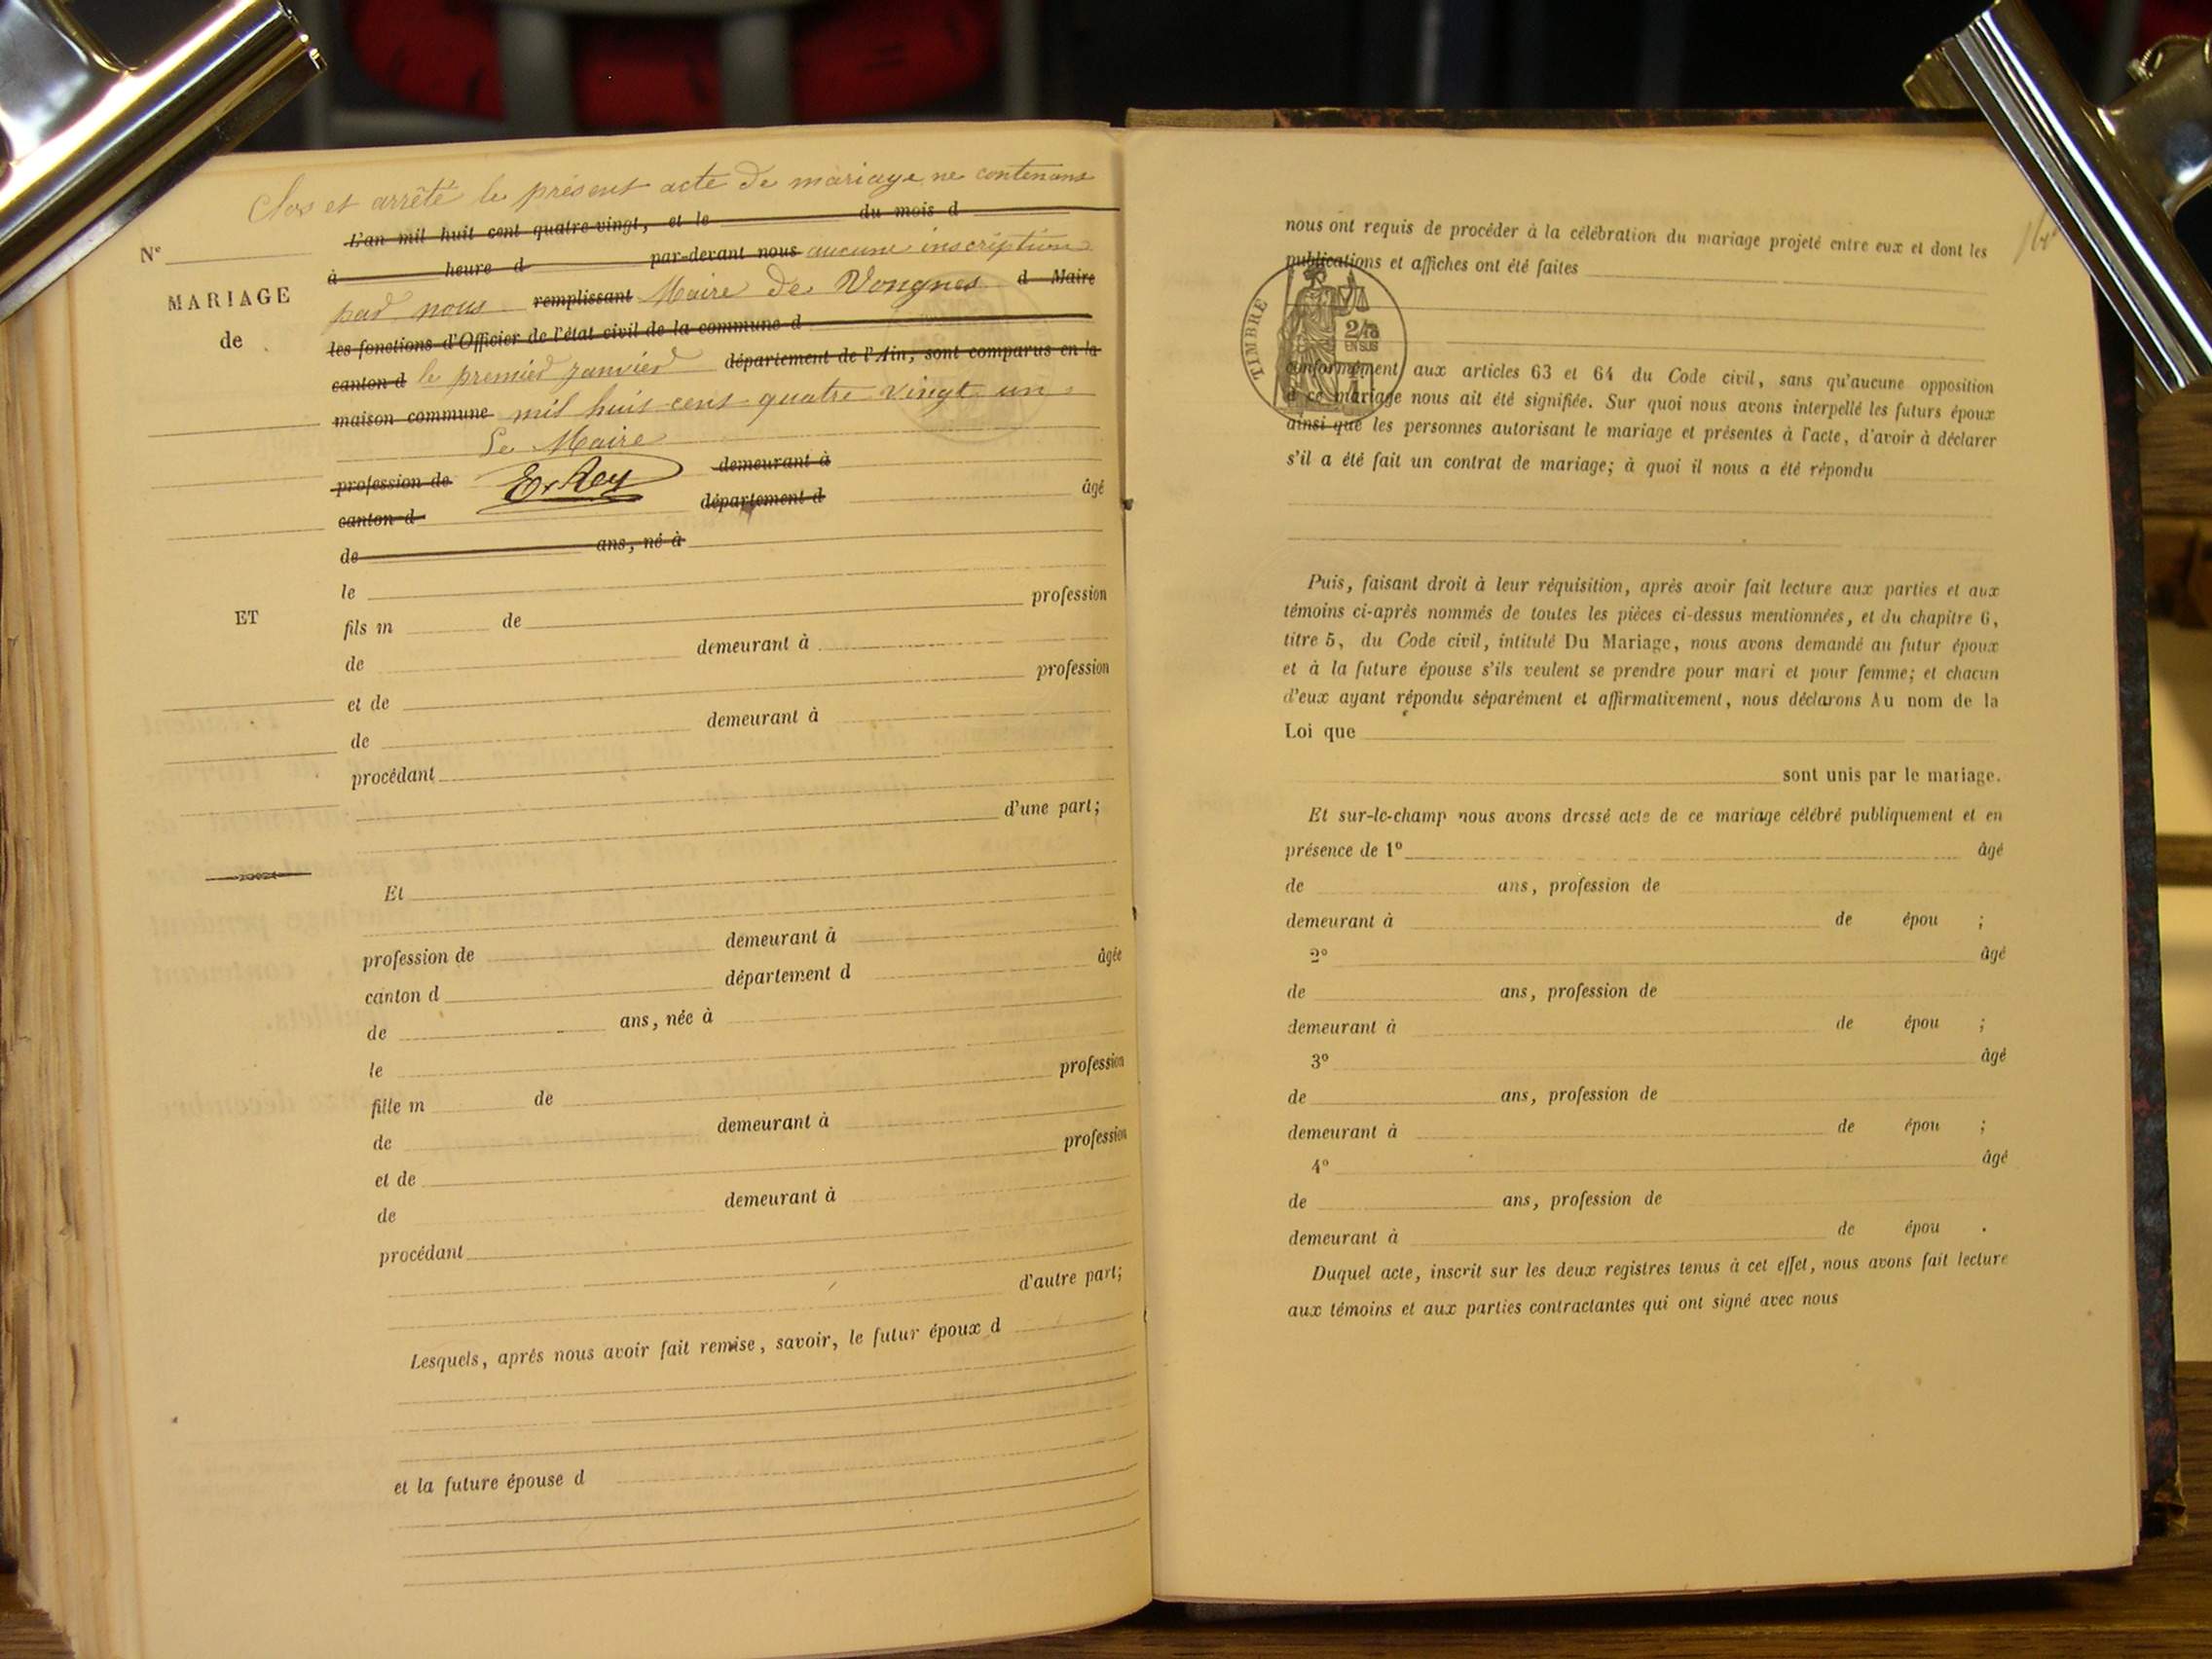 Clos et arrêté le présent acte de mariage ne contenant
L'an mil huit cent quatre-vingt, et le du mois d
Nº
à heure d par-devant nous aucune inscription
MARIAGE
par nous remplissant Maire de Vongnes d Maire
de
les fonctions d'Officier de l'état civil de la commune d
canton d le premier janvier département de l'Ain, sont comparus en la
maison commune mil huit cent quatre vingt un
Le Maire
profession de demeurant à
canton d département d âgé
de ans, né à
le
ET
fils m de profession
de demeurant à
et de profession
de demeurant à
procédant
d'une part;
Et
profession de demeurant à
canton d département d âgée
de ans, née à
le
fille m de profession
de demeurant à
et de profession
de demeurant à
procédant
d'autre part;
Lesquels, après nous avoir fait remise, savoir, le futur époux d
et la future épouse d
nous ont requis de procéder à la célébration du mariage projeté entre eux et dont les
publications et affiches ont été faites
TIMBRE
EN SUS
conformément aux articles 63 et 64 du Code civil, sans qu'aucune opposition
à ce mariage nous ait été signifiée. Sur quoi nous avons interpellé les futurs époux
ainsi que les personnes autorisant le mariage et présentes à l'acte, d'avoir à déclarer
s'il a été fait un contrat de mariage; à quoi il nous a été répondu
Puis, faisant droit à leur réquisition, après avoir fait lecture aux parties et aux
témoins ci-après nommés de toutes les pièces ci-dessus mentionnées, et du chapitre 6,
titre 5, du Code civil, intitulé Du Mariage, nous avons demandé au futur époux
et à la future épouse s'ils veulent se prendre pour mari et pour femme; et chacun
d'eux ayant répondu séparément et affirmativement, nous déclarons Au nom de la
Loi que
sont unis par le mariage.
Et sur-le-champ nous avons dressé acte de ce mariage célébré publiquement et en
présence de 1º âgé
de ans, profession de
demeurant à de épou ;
2º âgé
de ans, profession de
demeurant à de épou ;
3º âgé
de ans, profession de
demeurant à de épou ;
4º âgé
de ans, profession de
demeurant à de épou .
Duquel acte, inscrit sur les deux registres tenus à cet effet, nous avons fait lecture
aux témoins et aux parties contractantes qui ont signé avec nous